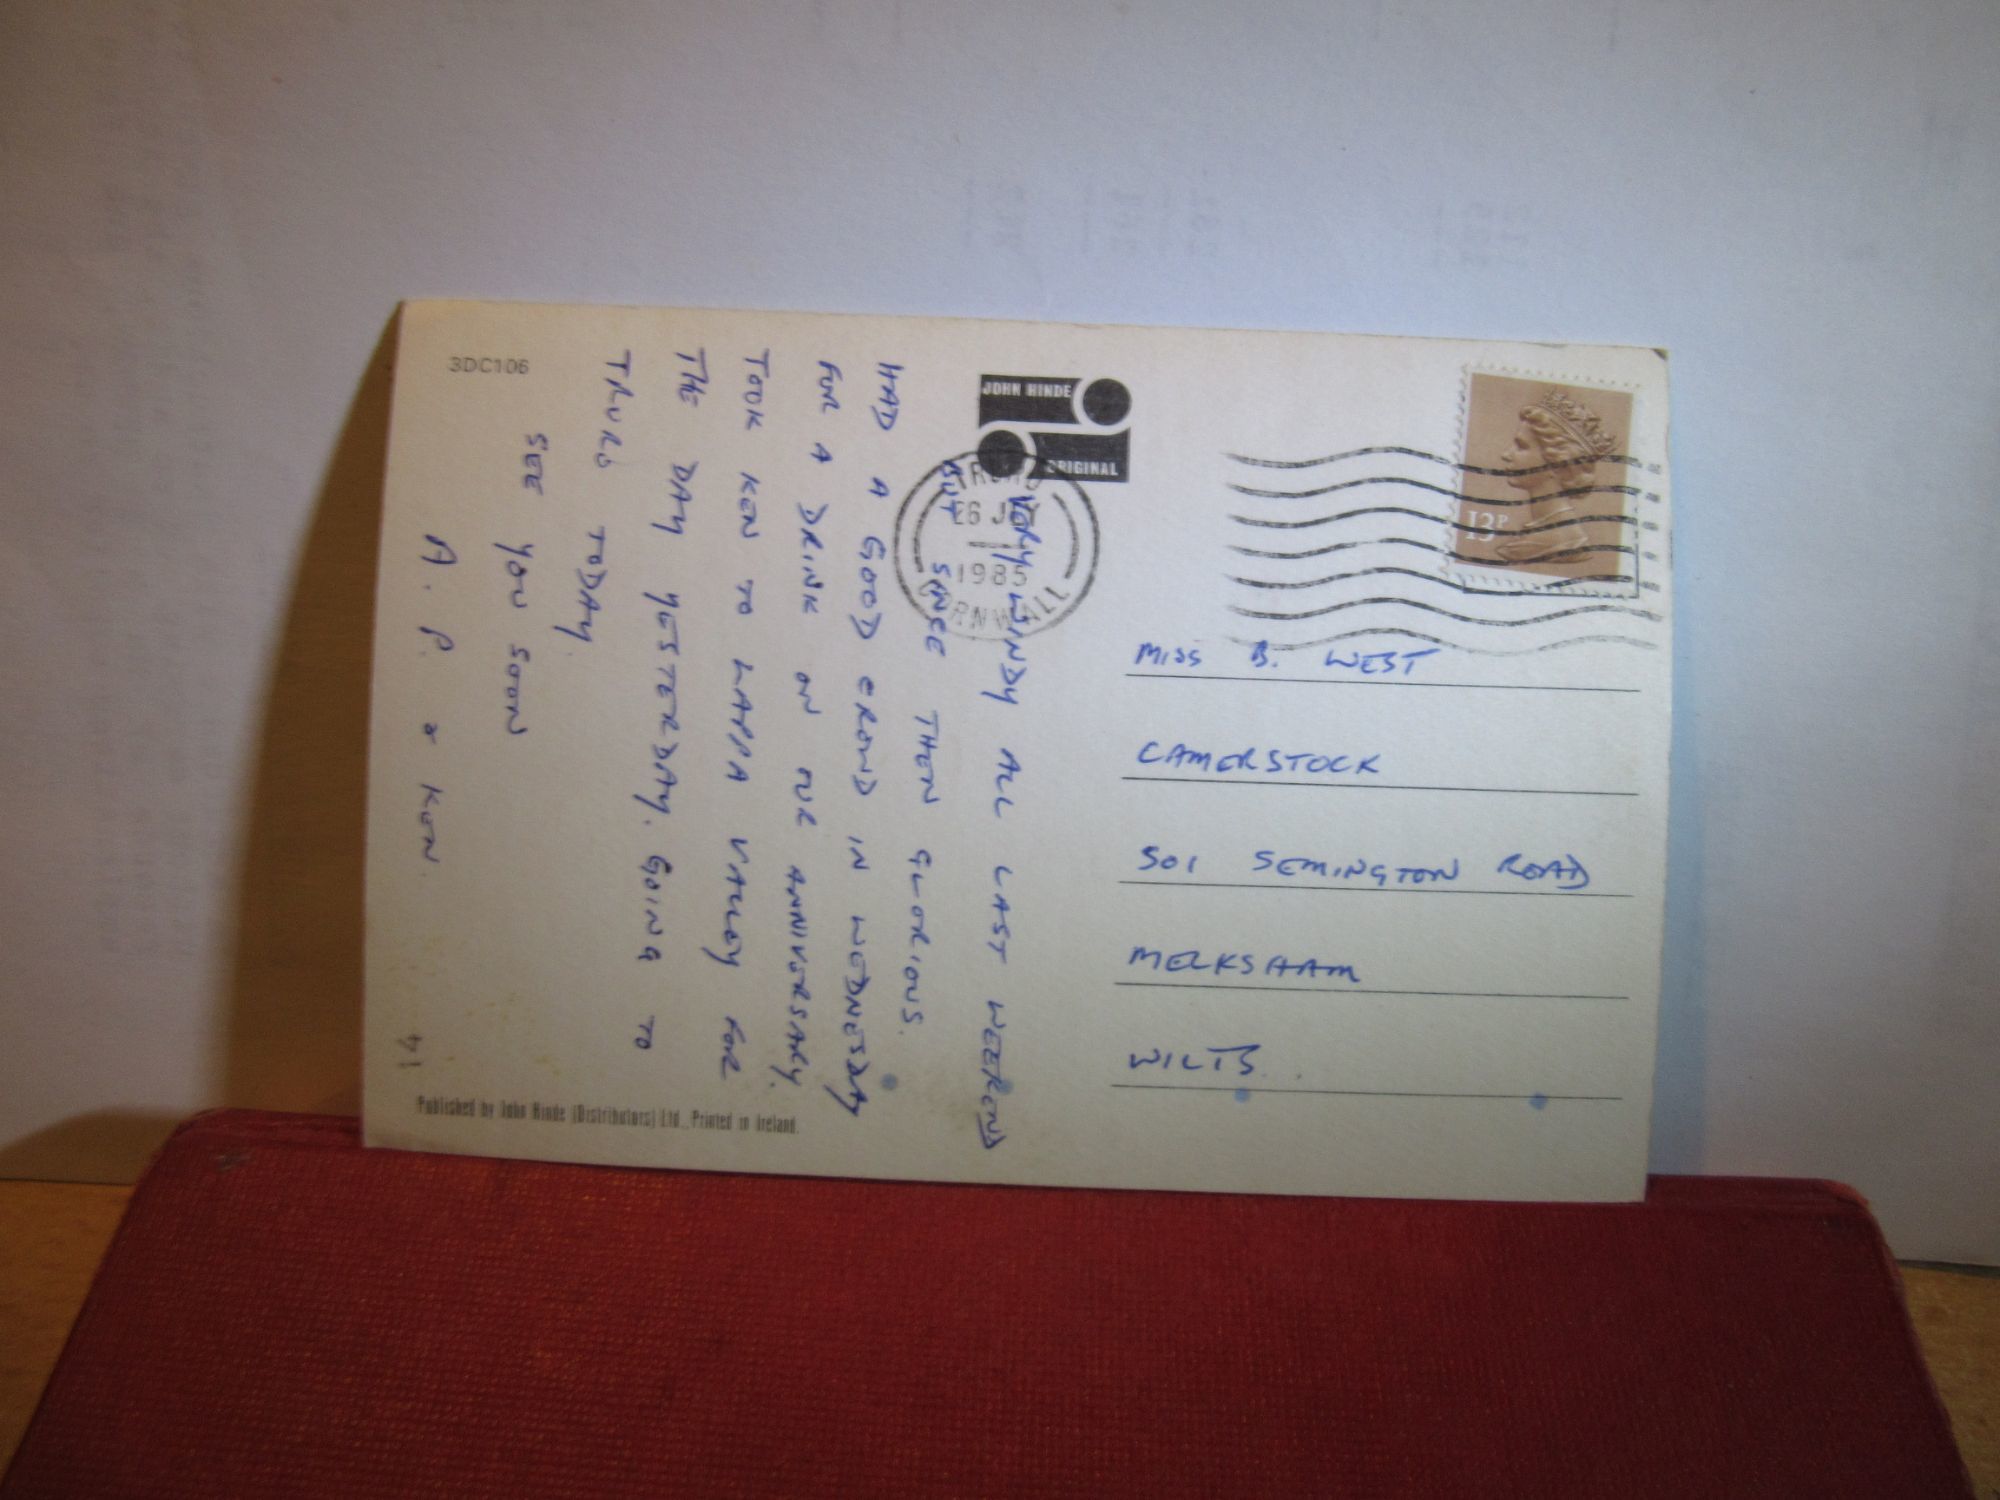 3DC106
JOHN HINDE
ORIGINAL
TRURO
26 JLY
1985
CORNWALL
13P
VERY WINDY ALL LAST WEEKEND
BUT SINCE THEN GLORIOUS.
HAD A GOOD CROWD IN WEDNESDAY
FOR A DRINK ON OUR ANNIVERSARY.
TOOK KEN TO LAPPA VALLEY FOR
THE DAY YESTERDAY. GOING TO
TRURO TODAY.
SEE YOU SOON
A. P. & KEN.
MISS B. WEST
CAMERSTOCK
501 SEMINGTON ROAD
MELKSHAM
WILTS.
Published by John Hinde (Distributors) Ltd., Printed in Ireland.